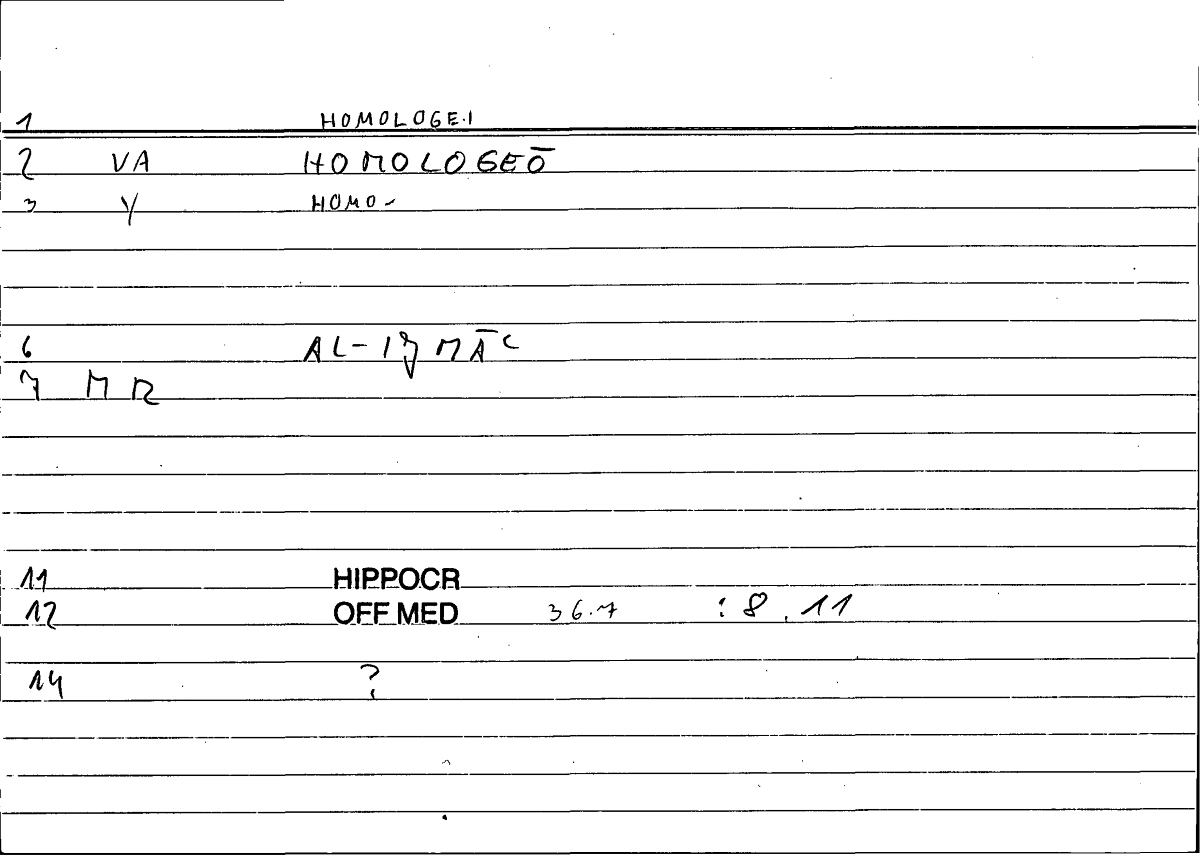 1 HOMOLOGE.I
2 VA HOMOLOGEŌ
3 Y HOMO-
6
7
11 HIPPOCR
12 OFF MED 36.7 : 8 . 11
14 ?